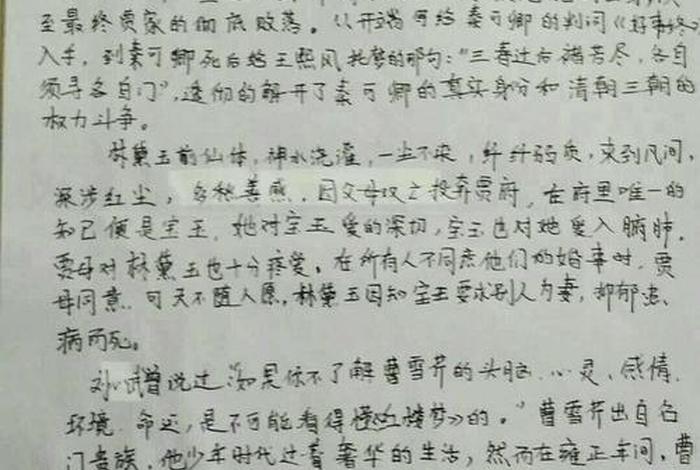 至最终贾家的彻底败落。从开端写给秦可卿的判词《好事终》
入手,到秦可卿死后给王熙风托梦的那句:"三春过后诸芳尽,各自
须寻各自门",透彻的解开了秦可卿的真实身份和清朝三朝的
权力斗争。
林黛玉前仙体,神水浇灌,一尘不染,纤纤弱质,来到凡间,
深涉红尘,多愁善感,因父母双亡投奔贾府,在府里唯一的
知己便是宝玉,她对宝玉爱的深切,宝玉也对她爱入腑肺。
贾母对林黛玉也十分疼爱。在所有人不同意他们的婚事时,贾
母同意,可天不随人愿,林黛玉因知宝玉要求别人为妻,抑郁患
病而死。
刘心武曾说过:"如果你不了解曹雪芹的头脑、心灵、感情、
环境、命运,是不可能看得懂《红楼梦》的。"曹雪芹出自名
门贵族,他少年时代过着奢华的生活,然而在雍正年间,曹